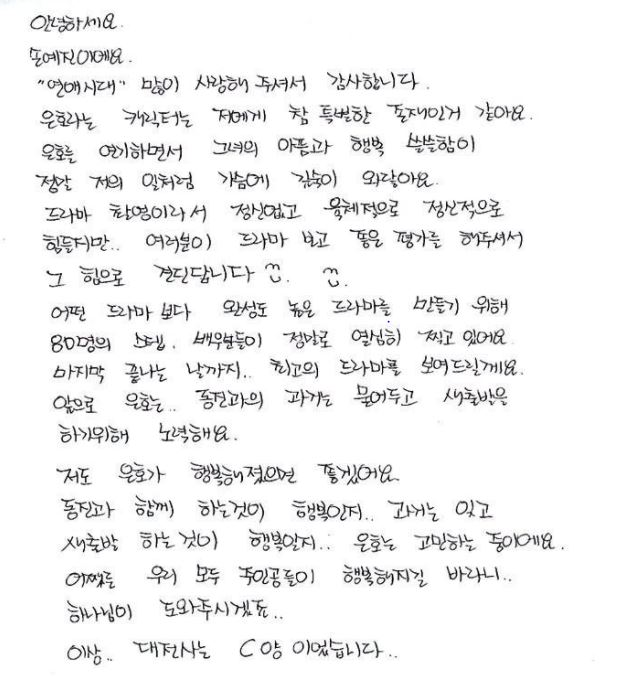 안녕하세요.
손예진이에요.
"연애시대" 많이 사랑해 주셔서 감사합니다.
은호라는 캐릭터는 저에게 참 특별한 존재인거 같아요.
은호를 연기하면서 그녀의 아픔과 행복 쓸쓸함이
정말 저의 일처럼 가슴에 깊숙이 와닿아요.
드라마 촬영이라서 정신없고 육체적으로 정신적으로
힘들지만.. 여러분이 드라마 보고 좋은 평가를 해주셔서
그 힘으로 견딘답니다
어떤 드라마 보다 완성도 높은 드라마를 만들기 위해
80명의 스텝, 배우분들이 정말로 열심히 찍고 있어요.
마지막 끝나는 날까지.. 최고의 드라마를 보여드릴께요.
앞으로 은호는.. 동진과의 과거는 묻어두고 새출발을
하기위해 노력해요.
저도 은호가 행복해졌으면 좋겠어요.
동진과 함께 하는것이 행복인지.. 과거는 잊고
새출발 하는것이 행복인지.. 은호는 고민하는 중이에요.
어쨌든 우리 모두 주인공들이 행복해지길 바라니..
하나님이 도와주시겠죠..
이상.. 대전사는 C양 이었습니다..